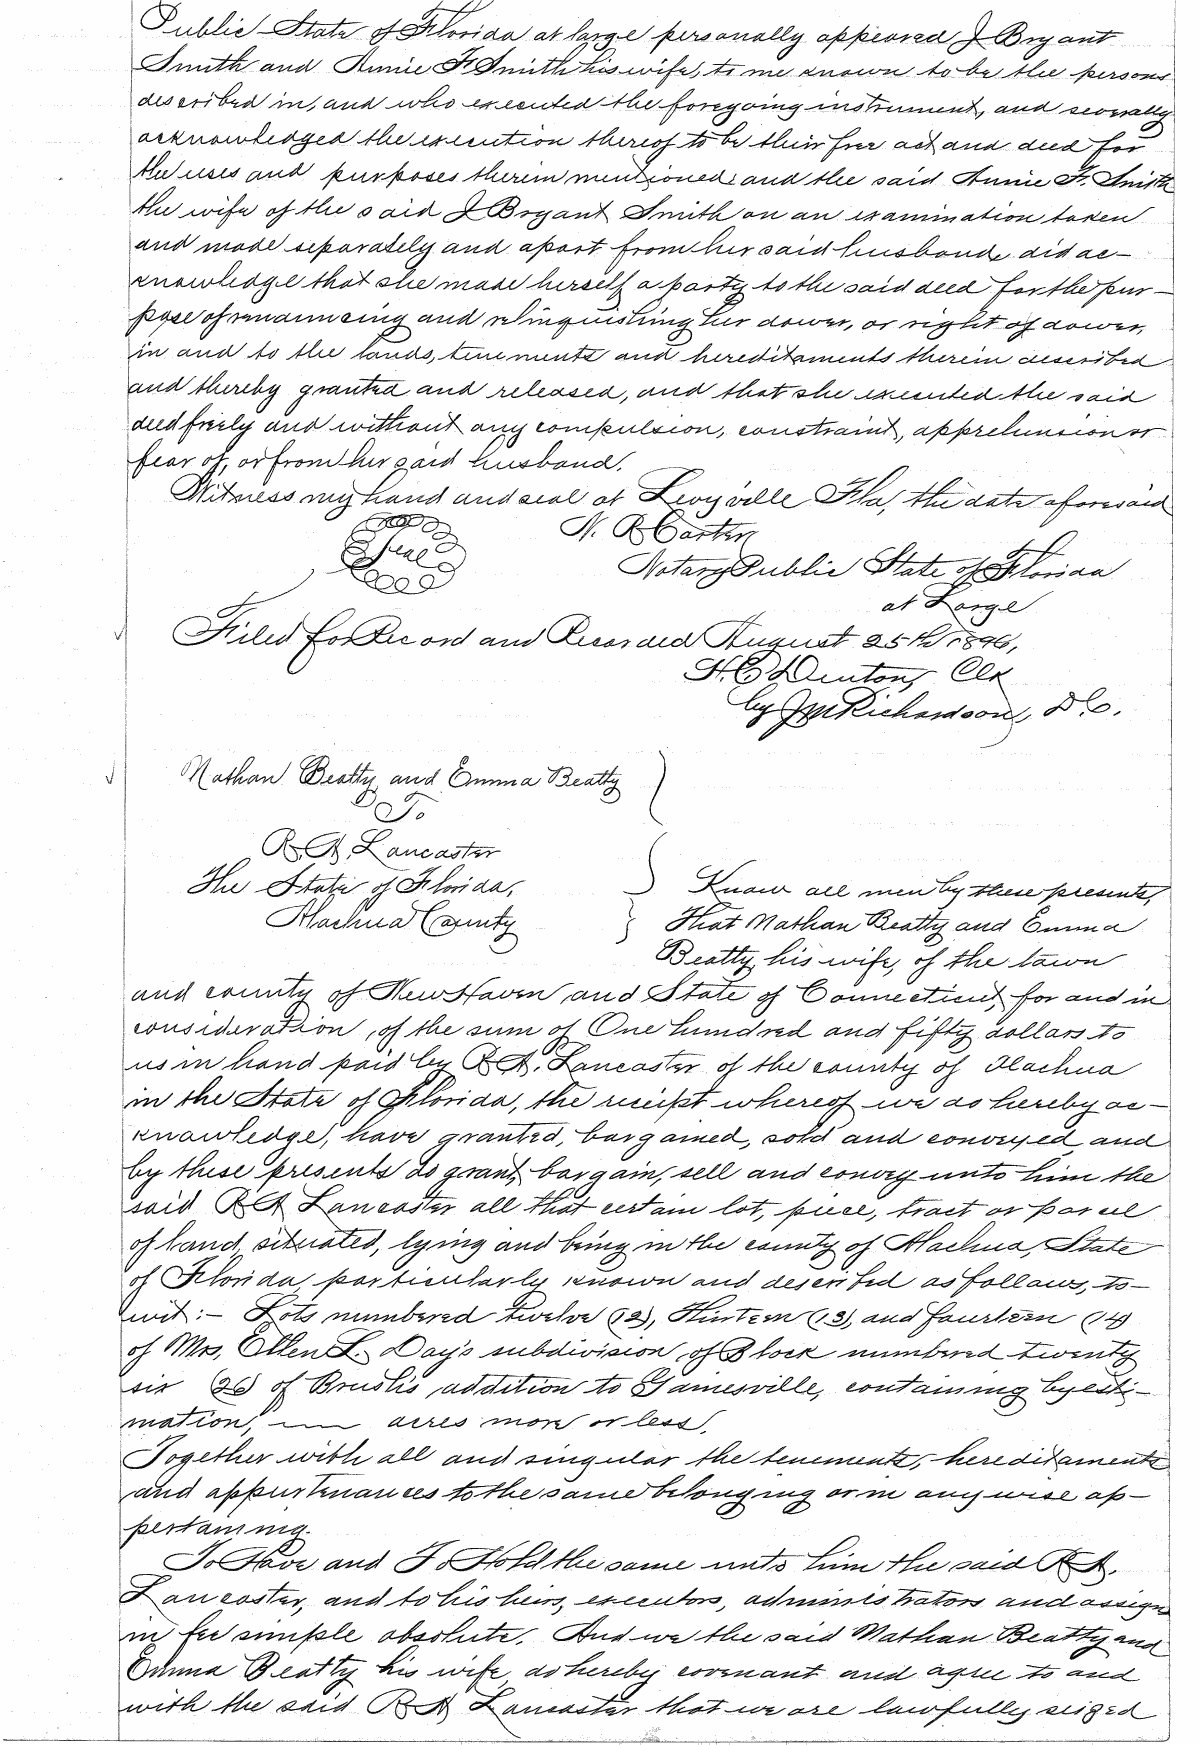 Public State of Florida at large personally appeared J Bryant
Smith and Annie F. Smith his wife, to me known to be the persons
described in, and who executed the foregoing instrument, and severally
acknowledged the execution thereof to be their free act and deed for
the uses and purposes therein mentioned; and the said Annie F. Smith
the wife of the said J Bryant Smith on an examination taken
and made separately and apart from her said husband, did ac-
knowledge that she made herself a party to the said deed for the pur-
pose of renouncing and relinquishing her dower, or right of dower,
in and to the lands, tenements and hereditaments therein described
and thereby granted and released, and that she executed the said
deed freely and without any compulsion, constraint, apprehension or
fear of, or from her said husband.
Witness my hand and seal at Levyville Fla, the date aforesaid
Seal
N. R Carter
Notary Public State of Florida
at Large
Filed for Record and Recorded August 25th 1896,
H. C Denton, Clk
by J M Richardson, D C.
Nathan Beatty and Emma Beatty
To
R. A. Lancaster
The State of Florida,
Alachua County
Know all men by these presents,
That Nathan Beatty and Emma
Beatty his wife, of the town
and county of New Haven and State of Connecticut, for and in
consideration, of the sum of One hundred and fifty dollars to
us in hand paid by R A. Lancaster of the county of Alachua
in the State of Florida, the receipt whereof we do hereby ac-
knowledge, have granted, bargained, sold and conveyed, and
by these presents do grant, bargain, sell and convey unto him the
said R A Lancaster all that certain lot, piece, tract or parcel
of land, situated, lying and being in the county of Alachua, State
of Florida, particularly known and described as follows, to-
wit:- Lots numbered twelve (12), thirteen (13), and fourteen (14)
of Mrs, Ellen L. Day's subdivision of Block numbered twenty
six (26) of Brush's addition to Gainesville, containing by esti-
mation, — acres more or less.
Together with all and singular the tenements, hereditaments
and appurtenances to the same belonging or in any wise ap-
pertaining.
To Have and To Hold the same unto him the said R A.
Lancaster, and to his heirs, executors, administrators and assigns
in fee simple absolute. And we the said Nathan Beatty and
Emma Beatty his wife, do hereby covenant and agree to and
with the said R A Lancaster that we are lawfully seized